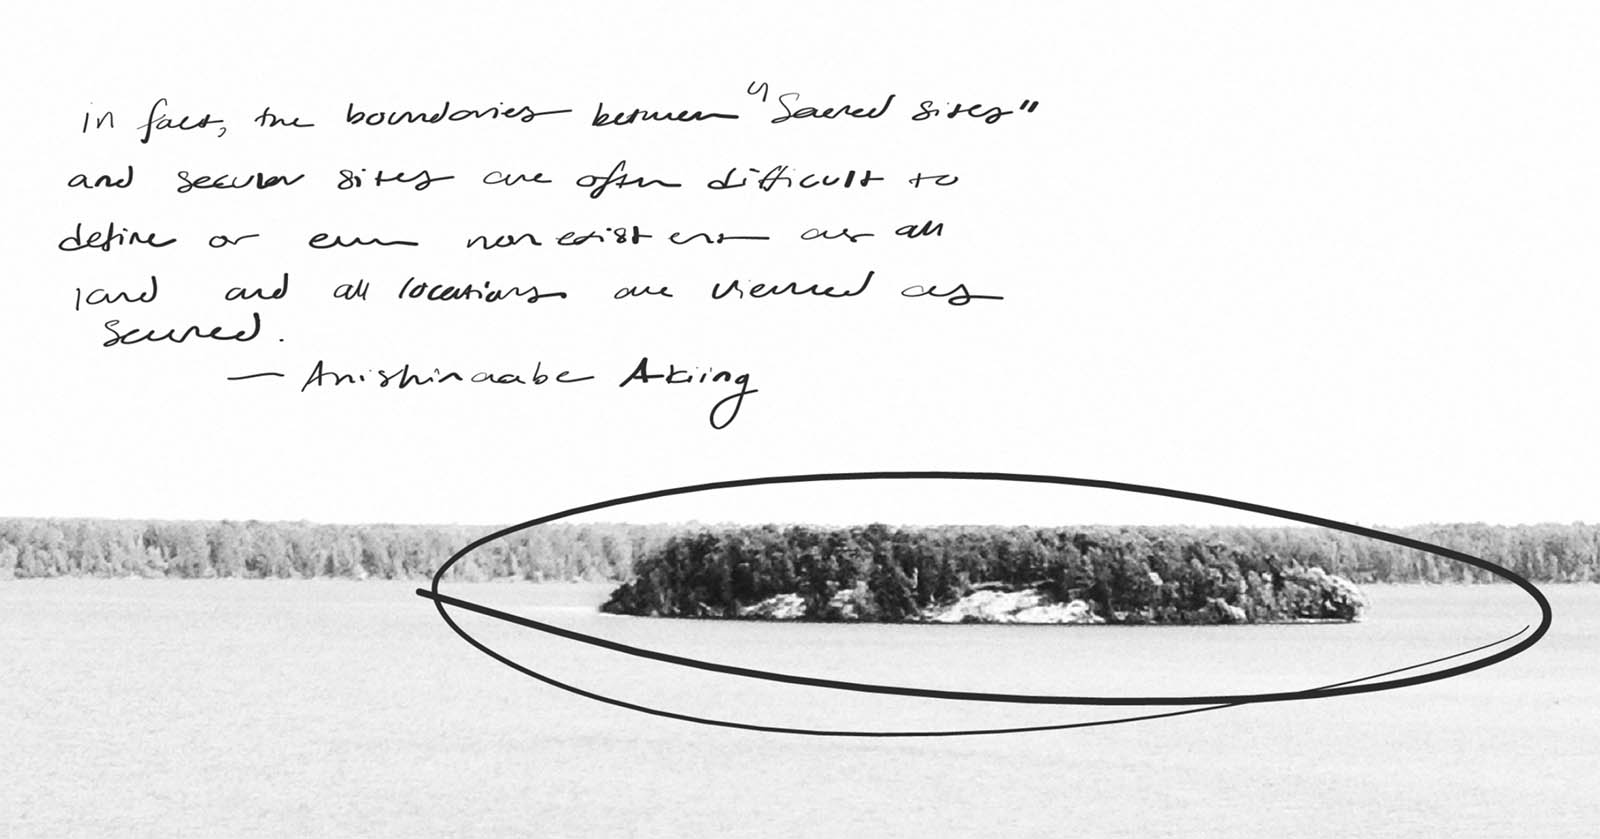 in fact, the boundaries between "Sacred sites"
and secular sites are often difficult to
define or even nonexistent as all
land and all locations are viewed as
sacred.
— Anishinaabe Akiing